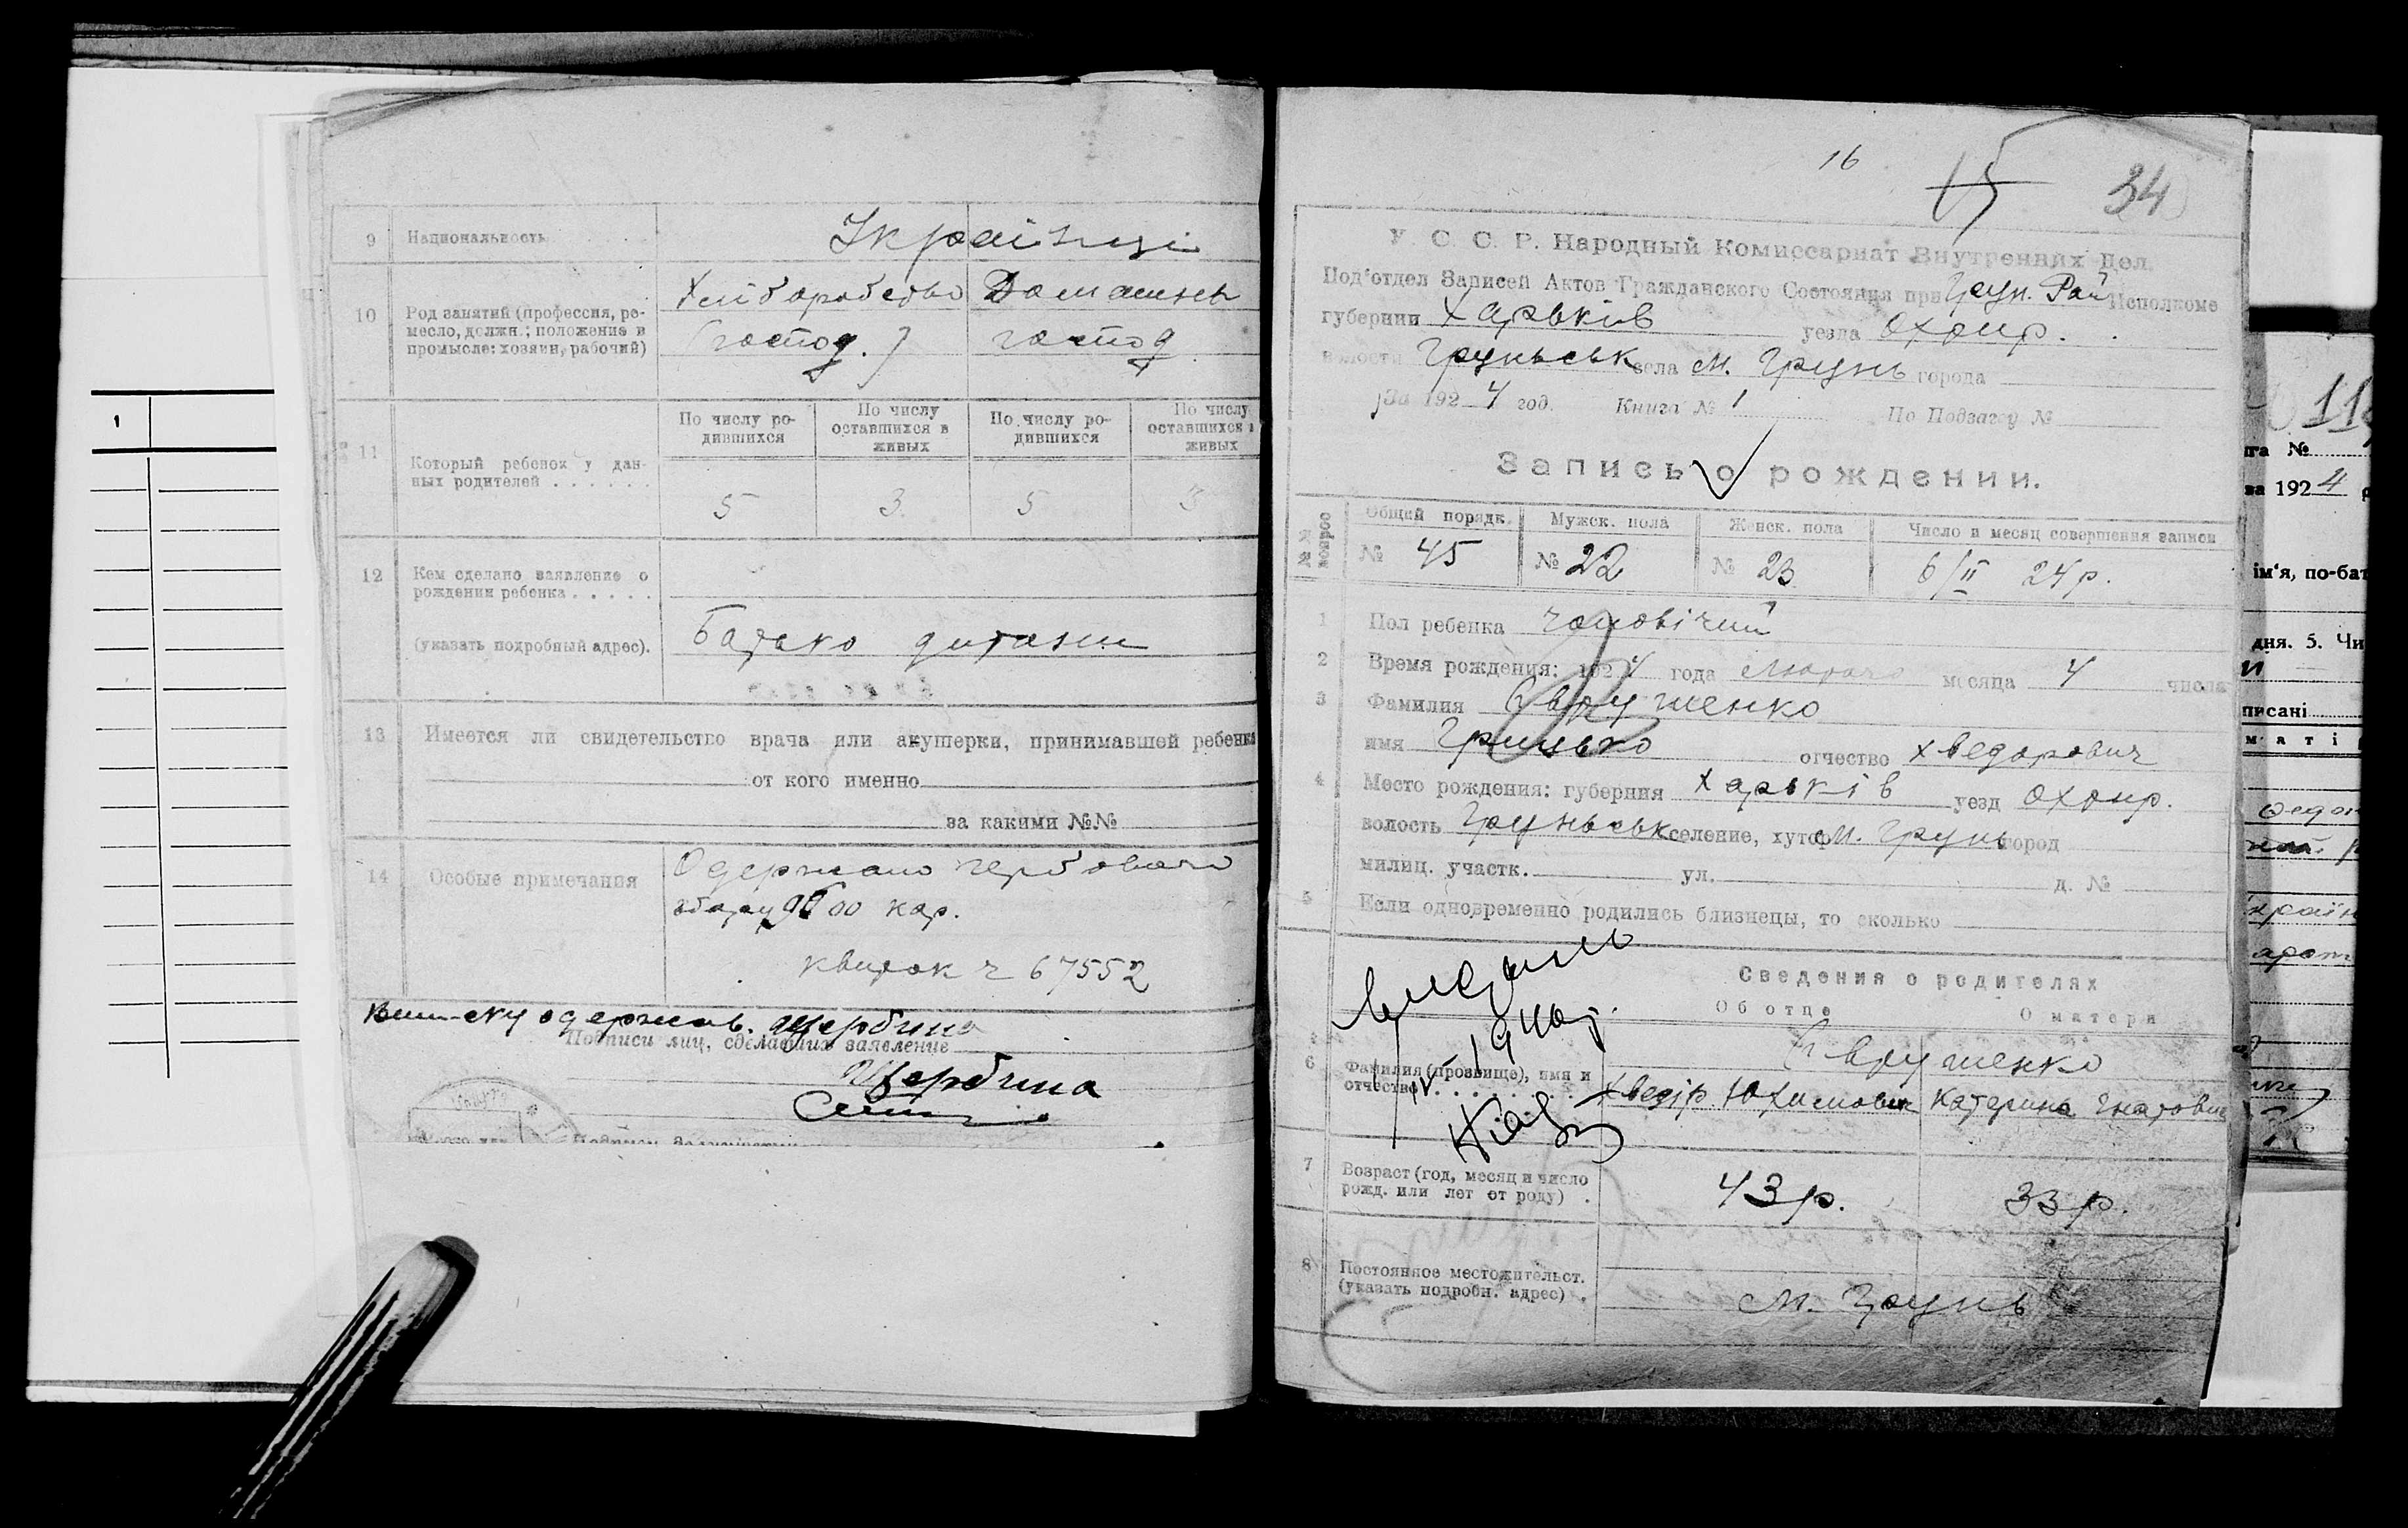 1
9 Национальность Українці
10 Род занятий (профессия, ремесло, должн.; положение в промысле: хозяин, рабочий)
Хліборобство Домашнє
(господ.) господ.
11 Который ребенок у данных родителей . . . . . .
По числу родившихся По числу оставшихся в живых По числу родившихся По числу оставшихся в живых
5 3 5 3
12 Кем сделано заявление о рождении ребенка . . . . .
(указать подробный адрес). Батько дитини
13 Имеется ли свидетельство врача или акушерки, принимавшей ребенка
от кого именно
за какими №№
14 Особые примечания
Одержано гербового
збору 00 кар.
квиток ч 67552
Виписку одержав. Щербина
Подписи лиц, сделавших заявление
Щербина
16 15 34
У. С. С. Р. Народный Комиссариат Внутренних Дел.
Под'отдел Записей Актов Гражданского Состояния при Грун. Рай Исполкоме
губернии Харьків уезда Охтир.
волости Груньськ села м. Грунь города
За 1924 год. Книга № 1 По Подзагсу №
Запись о рождении.
№№ вопрос Общий порядк. Мужск. пола Женск. пола Число и месяц совершения записи
№ 45 № 22 № 23 6/II 24 р.
1 Пол ребенка чоловічий
2 Время рождения: 1924 года лютого месяца 4 числа
3 Фамилия
имя Грицько отчество Хведорович
4 Место рождения: губерния Харьків уезд Охтир.
волость Груньськ селение, хутор м. Грунь город
милиц. участк. ул. д. №
5 Если одновременно родились близнецы, то сколько
Сведения о родителях
Об отце О матери
6 Фамилия (прозвище), имя и отчество
Хведір Юхимович Катерина Гнатовна
7 Возраст (год, месяц и число рожд. или лет от роду) . 43 р. 33 р.
8 Постоянное местожительст. (указать подробн. адрес) . м. Грунь
№
за 1924 р
ім'я, по-бат
дня. 5. Чи
писані
маті